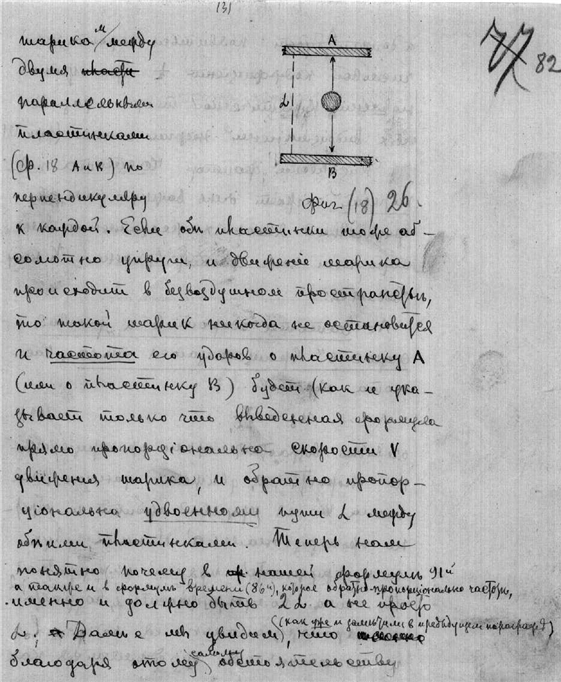 (3)
77 82
шарика между
двумя
параллельными
пластинками
(ф. 18 А и В) по
перпендикуляру
А
L
В
Фиг (18) 26.
к каждой. Если обе пластинки тоже аб-
солютно упруги, и движеніе шарика
происходит в безвоздушном пространстве,
то такой шарик никогда не остановится
и частота его ударов о пластинку А
(или о пластинку В) будет (как и ука-
зывает только что выведенная формула
прямо пропорціональна скорости V
движения шарика, и обратно пропор-
ціональна удвоенному пути L между
обеими пластинками. Теперь нам
понятно почему в нашей формуле 91й
а также и в формуле времени (86й), которое обратно-пропорціонально частоте,
именно и должно быть 2L а не просто
(как уже и замечали в предыдущем параграфе)
L. Далее мы увидим, что
благодаря этому самому обстоятельству